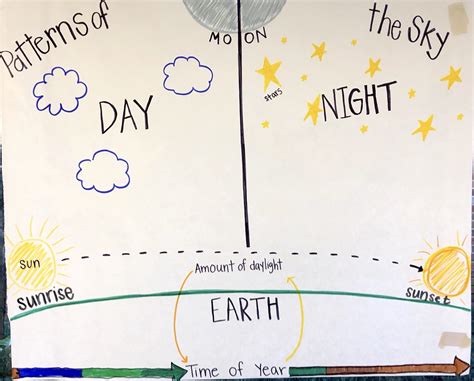 Patterns of
the Sky
MOON
DAY
stars
NIGHT
sun
sunrise
Amount of daylight
sunset
EARTH
Time of Year